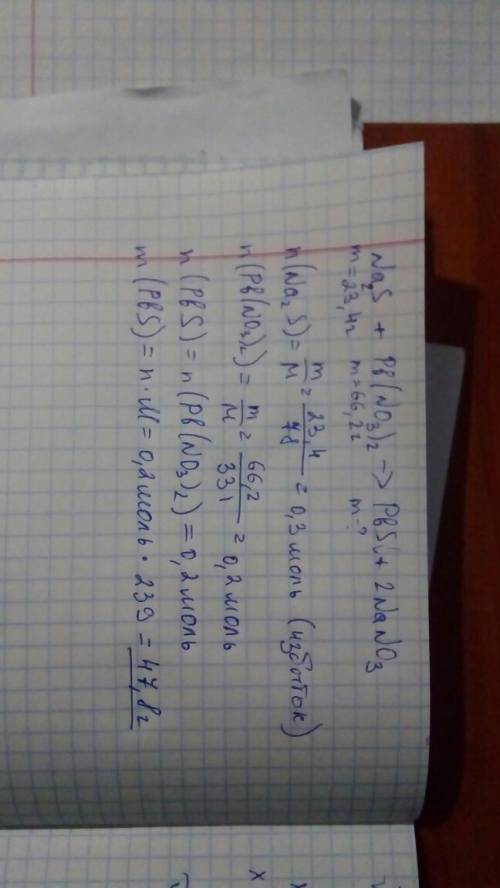 Na₂S + Pb(NO₃)₂ -> PbS↓ + 2NaNO₃
m=23,4г m=66,2г m-?
n(Na₂S) = m/M = 23,4/78 = 0,3 моль (избыток)
n(Pb(NO₃)₂) = m/M = 66,2/331 = 0,2 моль
n(PbS) = n(Pb(NO₃)₂) = 0,2 моль
m(PbS) = n·M = 0,2 моль · 239 = 47,8г